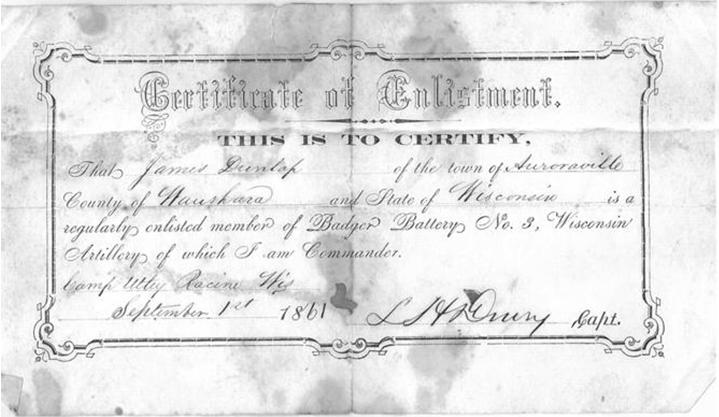 Certificate of Enlistment.
THIS IS TO CERTIFY,
That James Dunlap of the town of Auroraville
County of Waushara and State of Wisconsin is a
regularly enlisted member of Badger Battery No. 3, Wisconsin
Artillery of which I am Commander.
Camp Utley Racine Wis
September 1st 1861 L H Drury Capt.